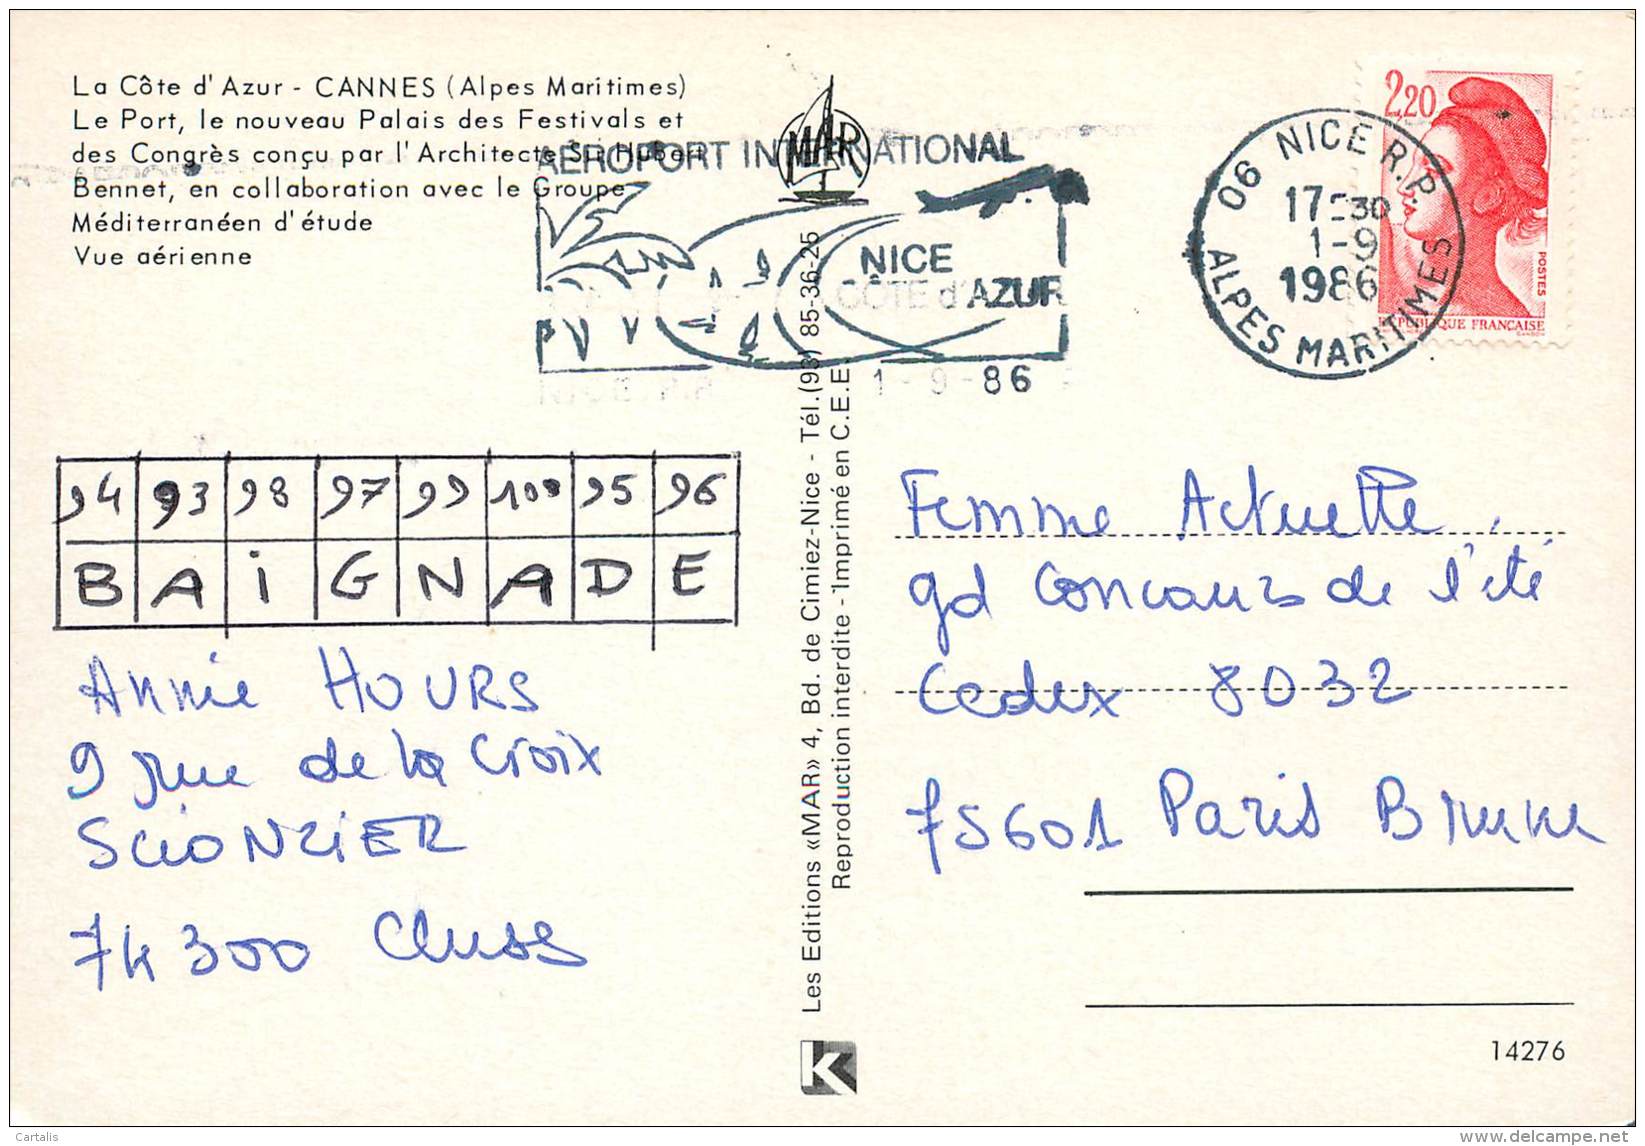 La Côte d'Azur - CANNES (Alpes Maritimes)
Le Port, le nouveau Palais des Festivals et
des Congrès conçu par l'Architecte Sir Hubert
Bennet, en collaboration avec le Groupe
Méditerranéen d'étude
Vue aérienne
MAR
AÉROPORT INTERNATIONAL
NICE
CÔTE d'AZUR
1-9-86
06 NICE R.P.
17-30
1-9
1986
ALPES MARITIMES
2,20
POSTES
REPUBLIQUE FRANÇAISE
94 93 98 97 99 100 95 96
B A i G N A D E
Annie HOURS
9 rue de la Croix
SCIONZIER
74300 Cluses
Les Editions «MAR» 4, Bd. de Cimiez-Nice - Tél.(93) 85-36-25
Reproduction interdite - Imprimé en C.E.E.
K
Femme Actuelle
gd Concours de l'été
Cedex 8032
75601 Paris Brune
14276
Cartalis
www.delcampe.net